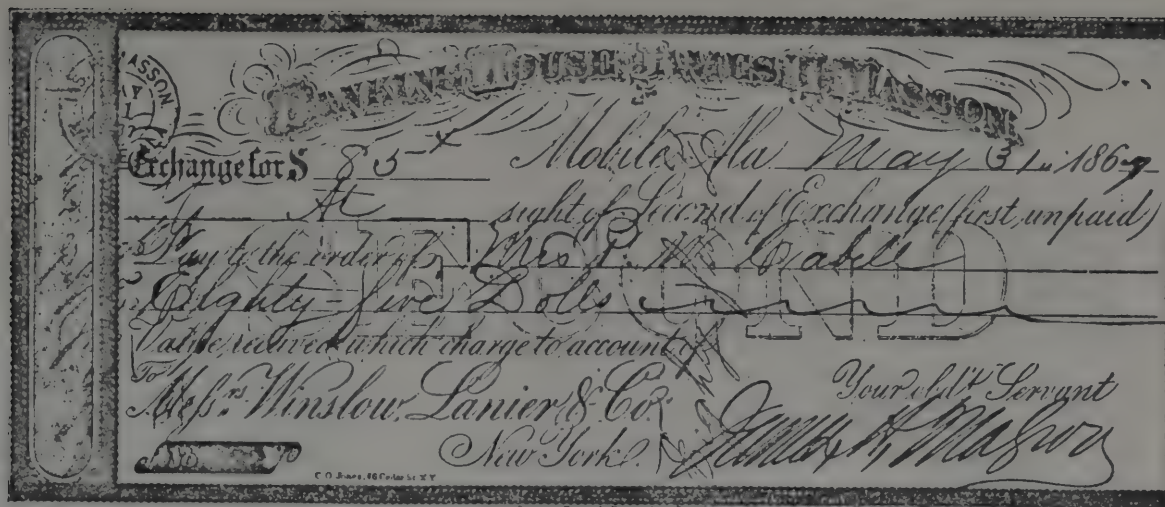 BANKING HOUSE OF JAMES H. MASSON
ASSON
Exchange for $ 85 x Mobile, Ala May 31 1867
At sight of Second of Exchange (first unpaid)
Pay to the order of Mrs Cabell
Eighty-five Dolls
SECOND
Value received which charge to account of
To
Messrs. Winslow, Lanier & Co. Your obdt. Servant
New York. James H. Masson
C.O. Jones, 16 Cedar St. N.Y.